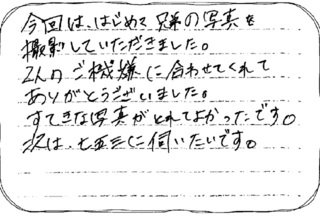 今回は、はじめて兄弟の写真を
撮影していただきました。
2人のご機嫌に合わせてくれて
ありがとうございました。
すてきな写真がとれてよかったです。
次は、七五三に伺いたいです。